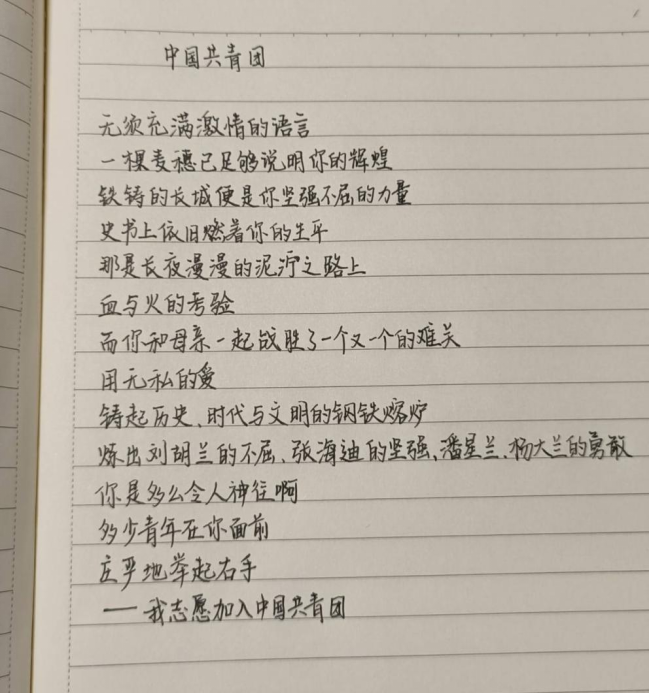 中国共青团
无须充满激情的语言
一棵麦穗已足够说明你的辉煌
铁铸的长城便是你坚强不屈的力量
史书上依旧燃着你的生平
那是长夜漫漫的泥泞之路上
血与火的考验
而你和母亲一起战胜了一个又一个的难关
用无私的爱
铸起历史、时代与文明的钢铁熔炉
炼出刘胡兰的不屈、张海迪的坚强、潘星兰、杨大兰的勇敢
你是多么令人神往啊
多少青年在你面前
庄严地举起右手
——我志愿加入中国共青团